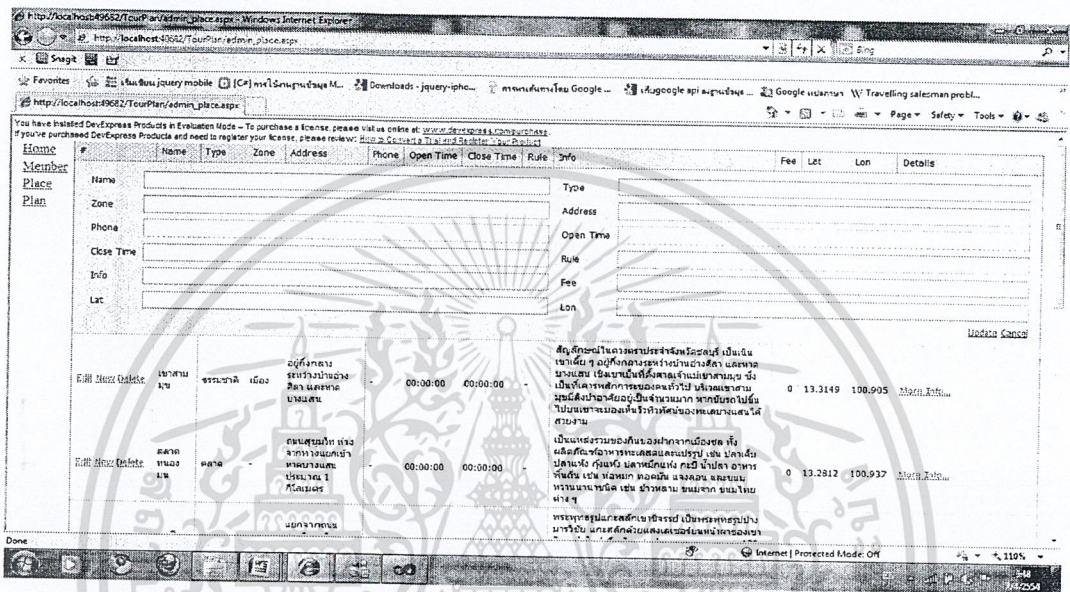 http://localhost:49682/TourPlan/admin_place.aspx - Windows Internet Explorer
http://localhost:49682/TourPlan/admin_place.aspx
Bing
x Snagit
Favorites เริ่มเขียน jquery mobile [C#] Downloads - jquery-ipho... การหาเส้นทางโดย Google ... Google แปลภาษา Travelling salesman probl...
http://localhost:49682/TourPlan/admin_place.aspx
Page Safety Tools
You have installed DevExpress Products in Evaluation Mode - To purchase a license, please visit us online at: www.devexpress.com/purchase.
If you've purchased DevExpress Products and need to register your license, please review: How to Convert a Trial and Register Your Product
Home
Member
Place
Plan
# Name Type Zone Address Phone Open Time Close Time Rule Info Fee Lat Lon Details
Name Type
Zone Address
Phone Open Time
Close Time Rule
Info Fee
Lat Lon
Update Cancel
Edit New Delete เขาสามมุข ธรรมชาติ เมือง อยู่กึ่งกลางระหว่างบ้านอ่างศิลา และหาดบางแสน - 00:00:00 00:00:00 -
สัญลักษณ์ในดวงตราประจำจังหวัดชลบุรี เป็นเนิน
เขาเตี้ย ๆ อยู่กึ่งกลางระหว่างบ้านอ่างศิลา และหาด
บางแสน เชิงเขาเป็นที่ตั้งศาลเจ้าแม่เขาสามมุข ซึ่ง
เป็นที่เคารพสักการะของคนทั่วไป บริเวณเขาสาม
มุขมีลิงป่าอาศัยอยู่เป็นจำนวนมาก หากขับรถไปขึ้น
ไปบนเขาจะมองเห็นวิวทิวทัศน์ของทะเลบางแสนได้
สวยงาม
0 13.3149 100.905 More Info...
Edit New Delete ตลาดหนองมน ตลาด - ถนนสุขุมวิท ห่างจากทางแยกเข้าหาดบางแสน ประมาณ 1 กิโลเมตร - 00:00:00 00:00:00 -
เป็นแหล่งรวมของกินของฝากจากเมืองชล ทั้ง
ผลิตภัณฑ์อาหารทะเลสดและแปรรูป เช่น ปลาเค็ม
ปลาแห้ง กุ้งแห้ง ปลาหมึกแห้ง กะปิ น้ำปลา อาหาร
พื้นถิ่น เช่น ห่อหมก ทอดมัน แจงลอน และขนม
หวานนานาชนิด เช่น ข้าวหลาม ขนมจาก ขนมไทย
ต่าง ๆ
0 13.2812 100.937 More Info...
แยกจากถนน
พระพุทธรูปแกะสลักเขาชีจรรย์ เป็นพระพุทธรูปปาง
มารวิชัย แกะสลักด้วยแสงเลเซอร์บนหน้าผาของเขา
Done Internet | Protected Mode: Off 110%